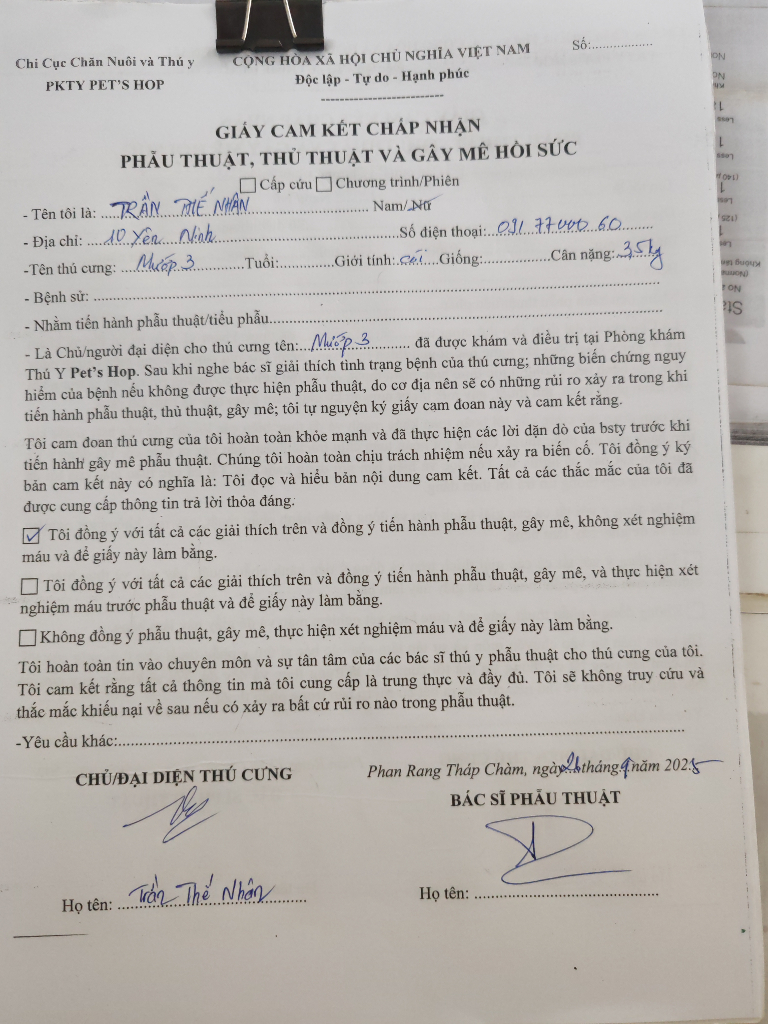 Chi Cục Chăn Nuôi và Thú y
PKTY PET'S HOP
CỘNG HÒA XÃ HỘI CHỦ NGHĨA VIỆT NAM
Độc lập - Tự do - Hạnh phúc
Số:.................
GIẤY CAM KẾT CHẤP NHẬN
PHẪU THUẬT, THỦ THUẬT VÀ GÂY MÊ HỒI SỨC
Cấp cứu Chương trình/Phiên
- Tên tôi là: TRẦN THẾ NHÂN Nam/Nữ
- Địa chỉ: 10 Yên Ninh Số điện thoại: 091 77 000 60
-Tên thú cưng: Mướp 3 Tuổi:............Giới tính: cái Giống:..............Cân nặng: 3,5kg
- Bệnh sử:
- Nhằm tiến hành phẫu thuật/tiểu phẫu
- Là Chủ/người đại diện cho thú cưng tên: Mướp 3 đã được khám và điều trị tại Phòng khám
Thú Y Pet's Hop. Sau khi nghe bác sĩ giải thích tình trạng bệnh của thú cưng; những biến chứng nguy
hiểm của bệnh nếu không được thực hiện phẫu thuật, do cơ địa nên sẽ có những rủi ro xảy ra trong khi
tiến hành phẫu thuật, thủ thuật, gây mê; tôi tự nguyện ký giấy cam đoan này và cam kết rằng.
Tôi cam đoan thú cưng của tôi hoàn toàn khỏe mạnh và đã thực hiện các lời dặn dò của bsty trước khi
tiến hành gây mê phẫu thuật. Chúng tôi hoàn toàn chịu trách nhiệm nếu xảy ra biến cố. Tôi đồng ý ký
bản cam kết này có nghĩa là: Tôi đọc và hiểu bản nội dung cam kết. Tất cả các thắc mắc của tôi đã
được cung cấp thông tin trả lời thỏa đáng.
Tôi đồng ý với tất cả các giải thích trên và đồng ý tiến hành phẫu thuật, gây mê, không xét nghiệm
máu và để giấy này làm bằng.
Tôi đồng ý với tất cả các giải thích trên và đồng ý tiến hành phẫu thuật, gây mê, và thực hiện xét
nghiệm máu trước phẫu thuật và để giấy này làm bằng.
Không đồng ý phẫu thuật, gây mê, thực hiện xét nghiệm máu và để giấy này làm bằng.
Tôi hoàn toàn tin vào chuyên môn và sự tân tâm của các bác sĩ thú y phẫu thuật cho thú cưng của tôi.
Tôi cam kết rằng tất cả thông tin mà tôi cung cấp là trung thực và đầy đủ. Tôi sẽ không truy cứu và
thắc mắc khiếu nại về sau nếu có xảy ra bất cứ rủi ro nào trong phẫu thuật.
-Yêu cầu khác:
CHỦ/ĐẠI DIỆN THÚ CƯNG
Phan Rang Tháp Chàm, ngày tháng 9 năm 2025
BÁC SĨ PHẪU THUẬT
Họ tên: Trần Thế Nhân
Họ tên: